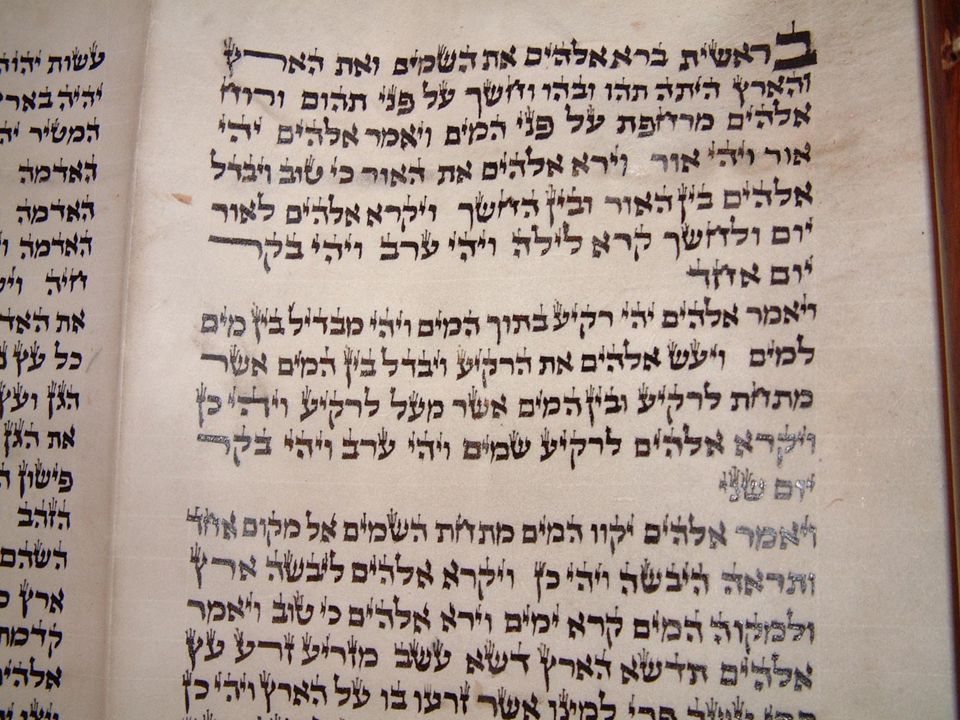 בראשית ברא אלהים את השמים ואת הארץ
והארץ היתה תהו ובהו וחשך על פני תהום ורוח
אלהים מרחפת על פני המים ויאמר אלהים יהי
אור ויהי אור וירא אלהים את האור כי טוב ויבדל
אלהים בין האור ובין החשך ויקרא אלהים לאור
יום ולחשך קרא לילה ויהי ערב ויהי בקר
יום אחד
ויאמר אלהים יהי רקיע בתוך המים ויהי מבדיל בין מים
למים ויעש אלהים את הרקיע ויבדל בין המים אשר
מתחת לרקיע ובין המים אשר מעל לרקיע ויהי כן
ויקרא אלהים לרקיע שמים ויהי ערב ויהי בקר
יום שני
ויאמר אלהים יקוו המים מתחת השמים אל מקום אחד
ותראה היבשה ויהי כן ויקרא אלהים ליבשה ארץ
ולמקוה המים קרא ימים וירא אלהים כי טוב ויאמר
אלהים תדשא הארץ דשא עשב מזריע זרע עץ
פרי עשה פרי למינו אשר זרעו בו על הארץ ויהי כן
עשות יהוה
יהיה בארץ
המטיר
האדמה
האדמה
האדמה
חיה
את האד
כל עץ
הגן ועץ
את הגן
פישון
הזהב
השהם
ארץ
קדמת
אלהי